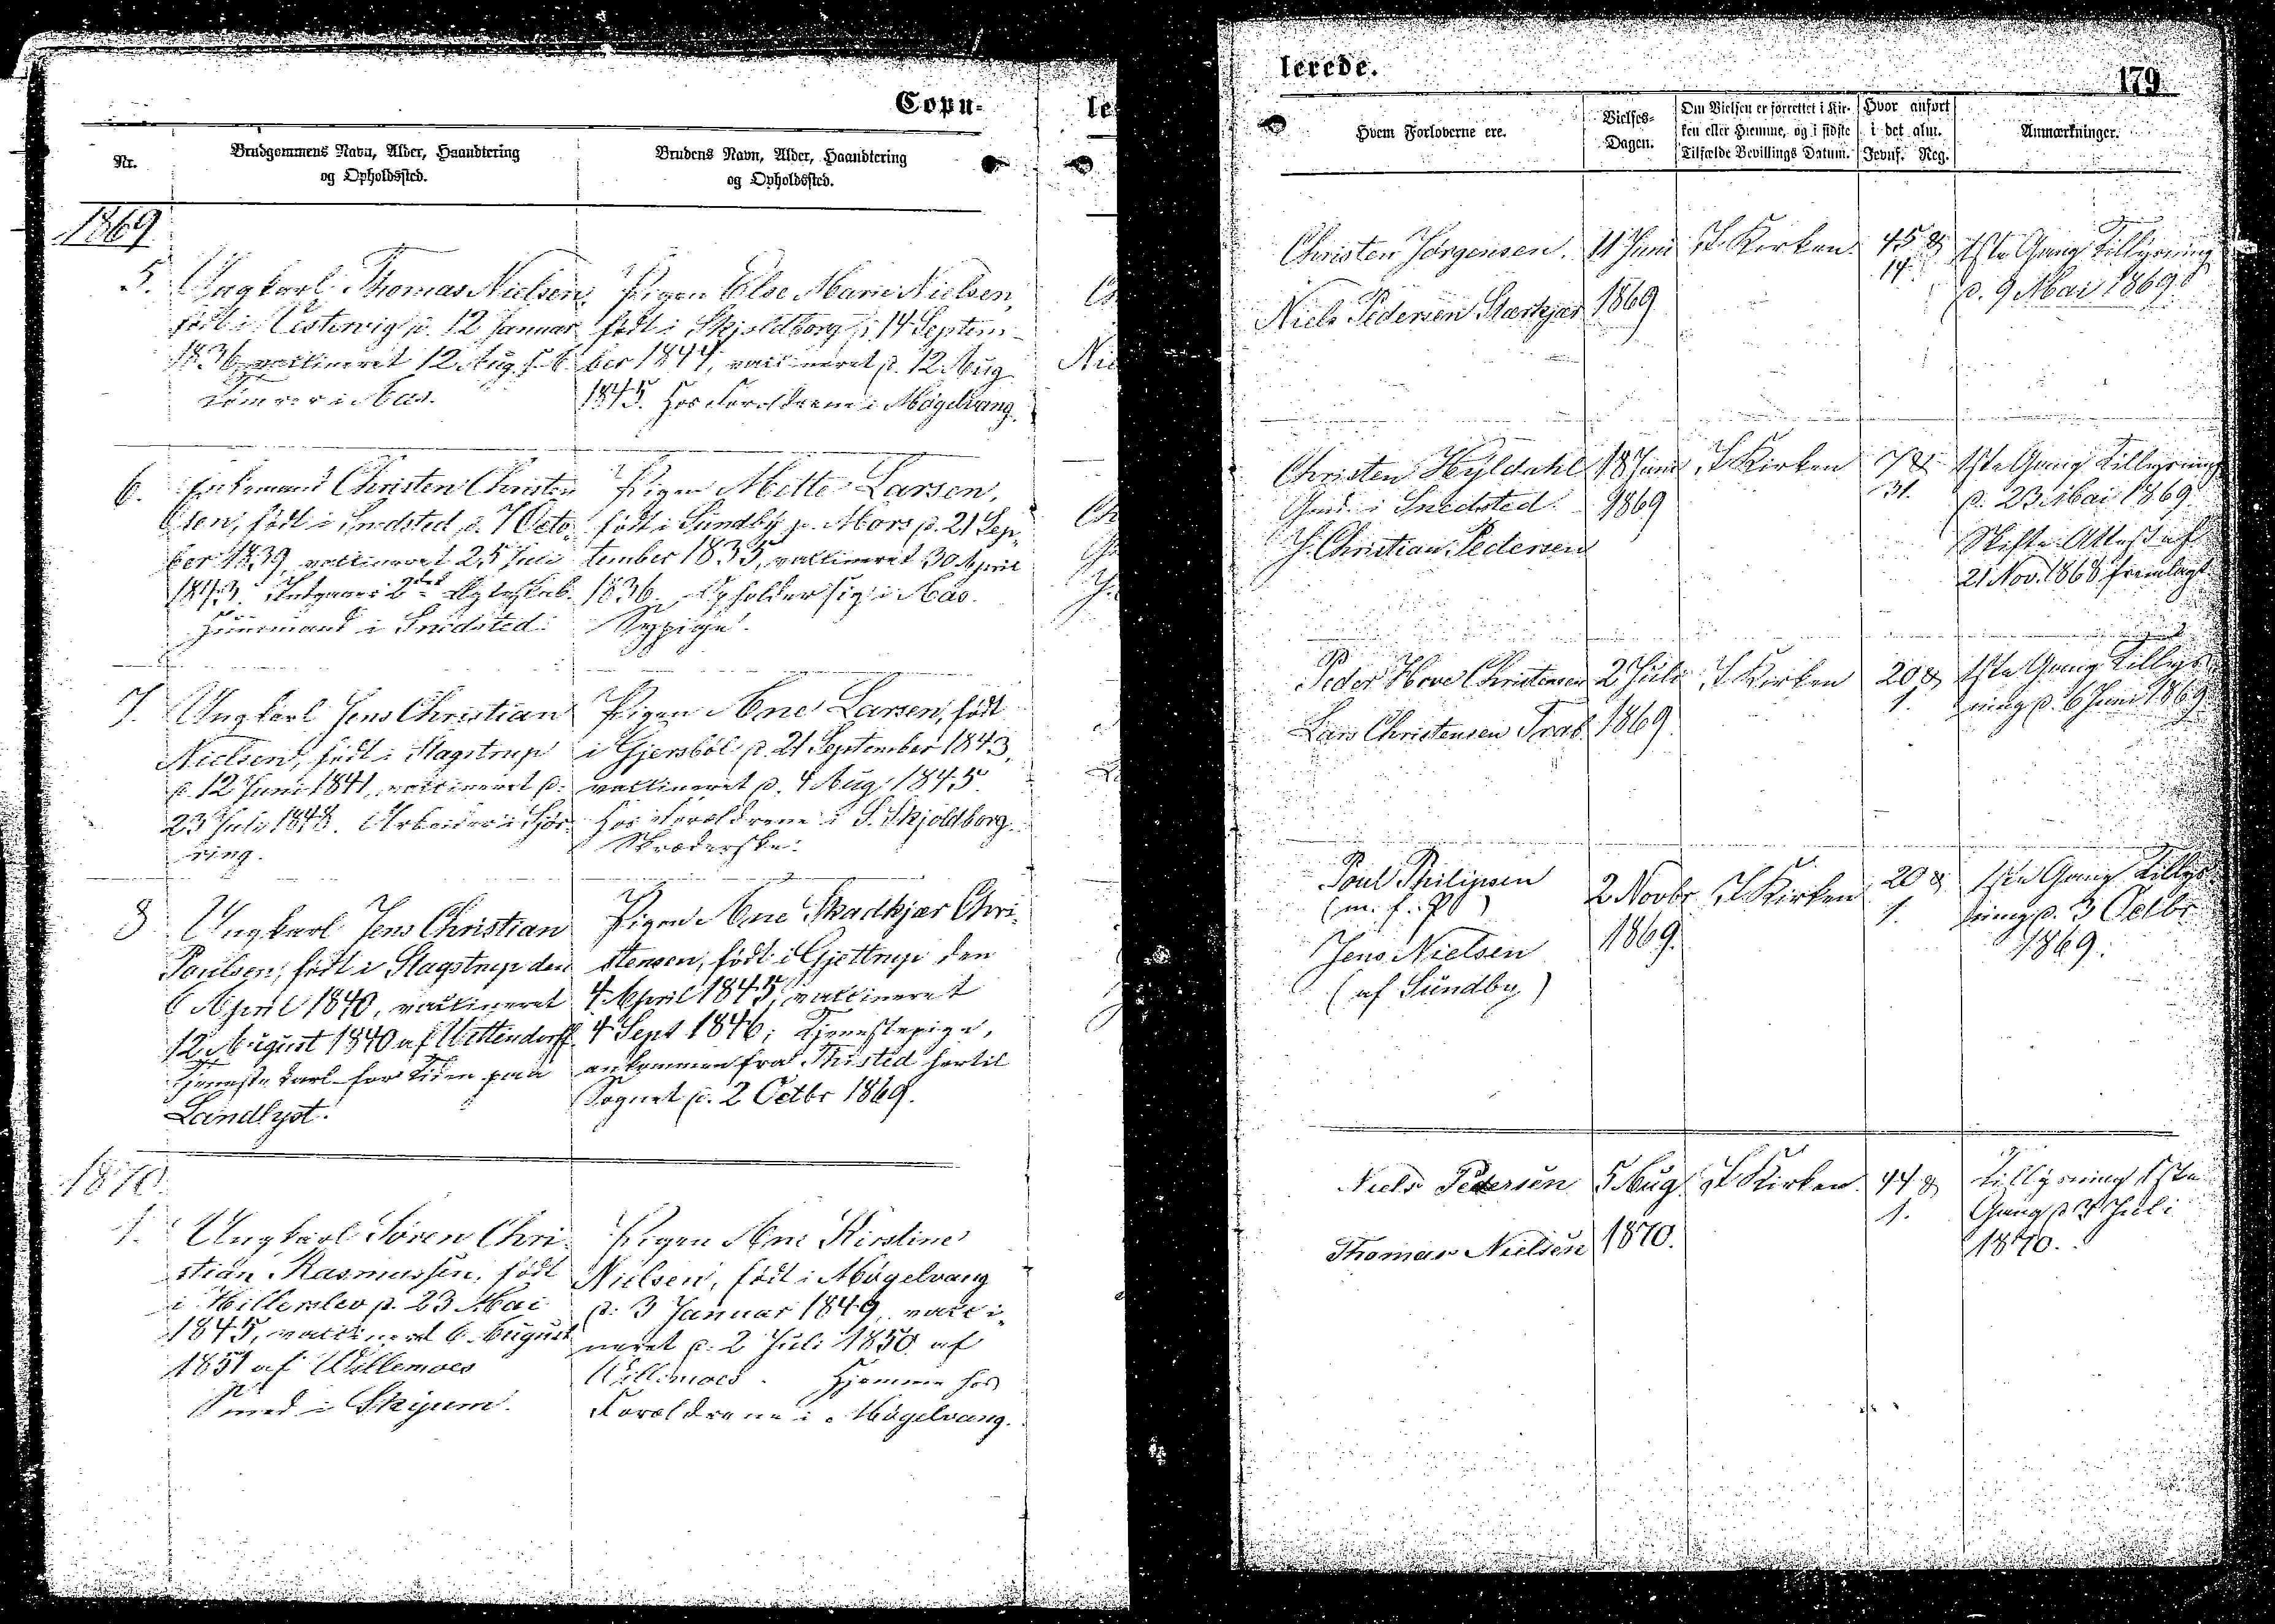 Copu-
Nr.
Brudgommens Navn, Alder, Haandtering
og Opholdssted.
Brudens Navn, Alder, Haandtering
og Opholdssted.
1869
5.
Ungkarl Thomas Nielsen,
født i Vestervig d. 12 Januar
1836, vaccineret 12 Aug. s. A.
Tømrer i Aas.
Pigen Else Marie Nielsen,
født i Skjoldborg d. 14 Septem-
ber 1844, vaccineret d. 12 Aug
1845. Hos Forældrene i Møgelvang.
6.
Enkemand Christen Christen
sen, født i Snedsted d. 7 Octo-
ber 1839, vaccineret 25 Juli
1843. Indgaaer i 2det Ægteskab.
Huusmand i Snedsted.
Pigen Mette Larsen,
født i Sundby p. Mors d. 21 Sep-
tember 1835, vaccineret 30 April
1836. Opholder sig i Aas.
Sypige.
7.
Ungkarl Jens Christian
Nielsen, født i Stagstrup
d. 12 Juni 1841, vaccineret d.
23 Juli 1848. Arbeider i Sjør-
ring.
Pigen Ane Larsen, født
i Gjersbøl d. 21 September 1843,
vaccineret d. 4 Aug. 1845.
Hos Forældrene i S. Skjoldborg.
Skræderske.
8
Ungkarl Jens Christian
Poulsen, født i Stagstrup den
6 April 1840, vaccineret
12 August 1840 af Wettendorff
Tjenestekarl for Tiden paa
Landlyst.
Pigen Ane Skadkjær Chri-
stensen, født i Gjettrup den
4 April 1845, vaccineret
4 Sept 1846; Tjenestepige,
ankommen fra Thisted hertil
Sognet d. 2 Octbr 1869.
1870.
1.
Ungkarl Søren Chri-
stian Rasmussen, født
i Hillerslev d. 23 Mai
1845, vaccineret 6 August
1851 af Willemoes
Smed i Skyum.
Pigen Ane Kirstine
Nielsen, født i Møgelvang
d. 3 Januar 1849, vacci-
neret d. 2 Juli 1850 af
Willemoes. Hjemme hos
Forældrene i Møgelvang.
lerede.
179
Hvem Forloverne ere.
Vielses-
Dagen.
Om Vielsen er forrettet i Kir-
ken eller Hjemme, og i sidste
Tilfælde Bevillings Datum.
Hvor anført
i det alm.
Jevnf. Reg.
Anmærkninger.
Christen Jørgensen.
Niels Pedersen Stærkjær
11 Juni
1869
I Kirken
45 &
14.
1ste Gang Tillysning
d. 9 Mai 1869
Christen Hyldahl
Gmd. i Snedsted.
J. Christian Pedersen
18 Juni
1869
I Kirken
7 &
31.
1ste Gang Tillysning
d. 23 Mai 1869.
Skifte-Attest af
21 Nov. 1868 fremlagt
Peder Hove Christensen
Lars Christensen Trab
2 Juli
1869.
I Kirken
20 &
1.
1ste Gang Tillys-
ning d. 6 Juni 1869
Poul Philipsen
Jens Nielsen
(af Sundby)
2 Novbr
1869.
I Kirken
20 &
1.
1ste Gang Tillys-
ning d. 3 Octbr
1869.
Niels Pedersen
Thomas Nielsen
5 Aug
1870.
I Kirken
44 &
1.
Tillysning 1ste
Gang d. 3 Juli
1870.